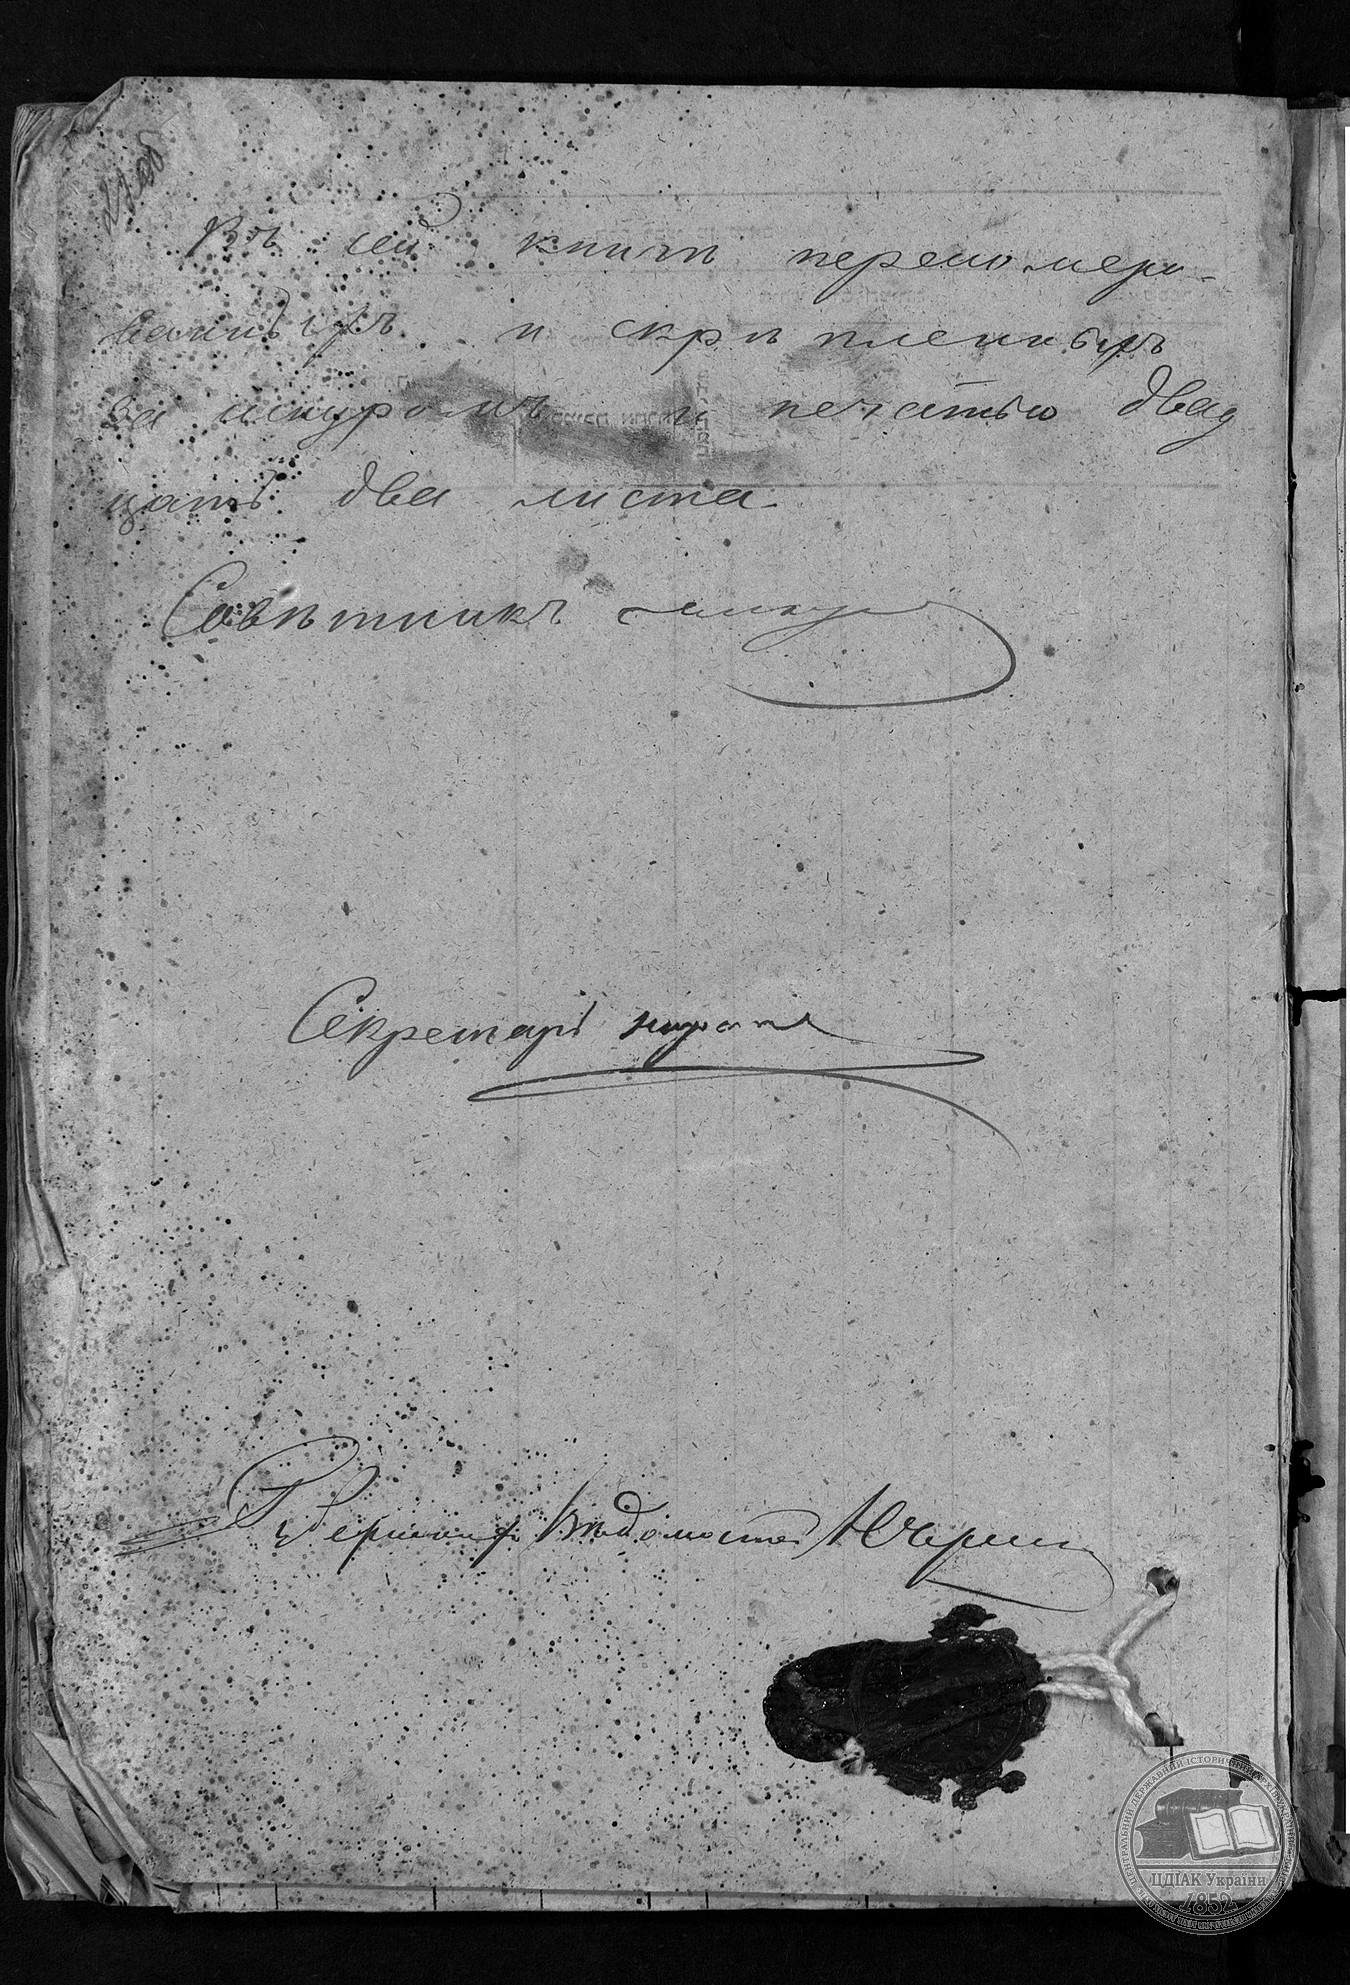 22об
Въ сей книгѣ перепомеро-
ванныхъ и скрѣпленныхъ
за шнуромъ и печатью двад
цать два листа
Совѣтникъ
Секретарь
Вѣдомостей
ЦЕНТРАЛЬНИЙ ДЕРЖАВНИЙ ІСТОРИЧНИЙ АРХІВ УКРАЇНИ
ЦДІАК України
1852